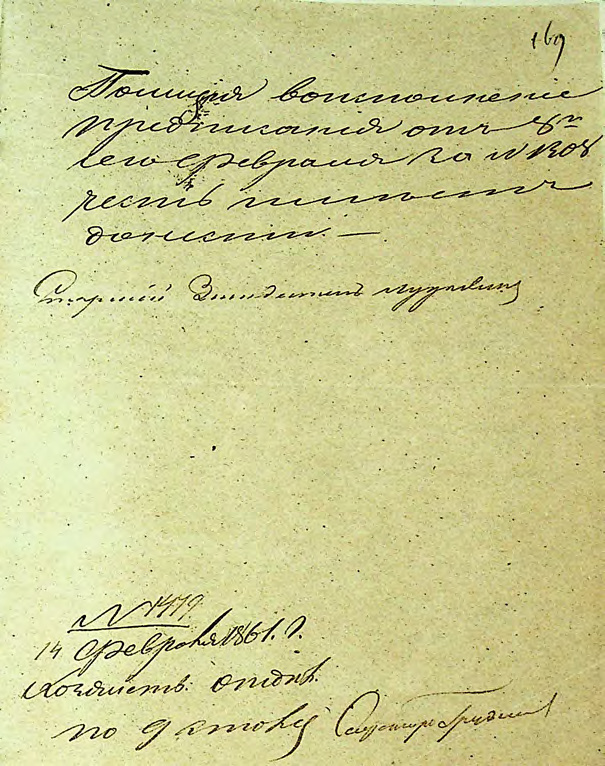 169
Полиция во исполнение
предписания отъ 8го
сего февраля за N 1308
честь имѣетъ
донести. —
Старшій
N 1479.
14 февраля 1861. г.
Хозяйств. отдѣл.
по 9 столу